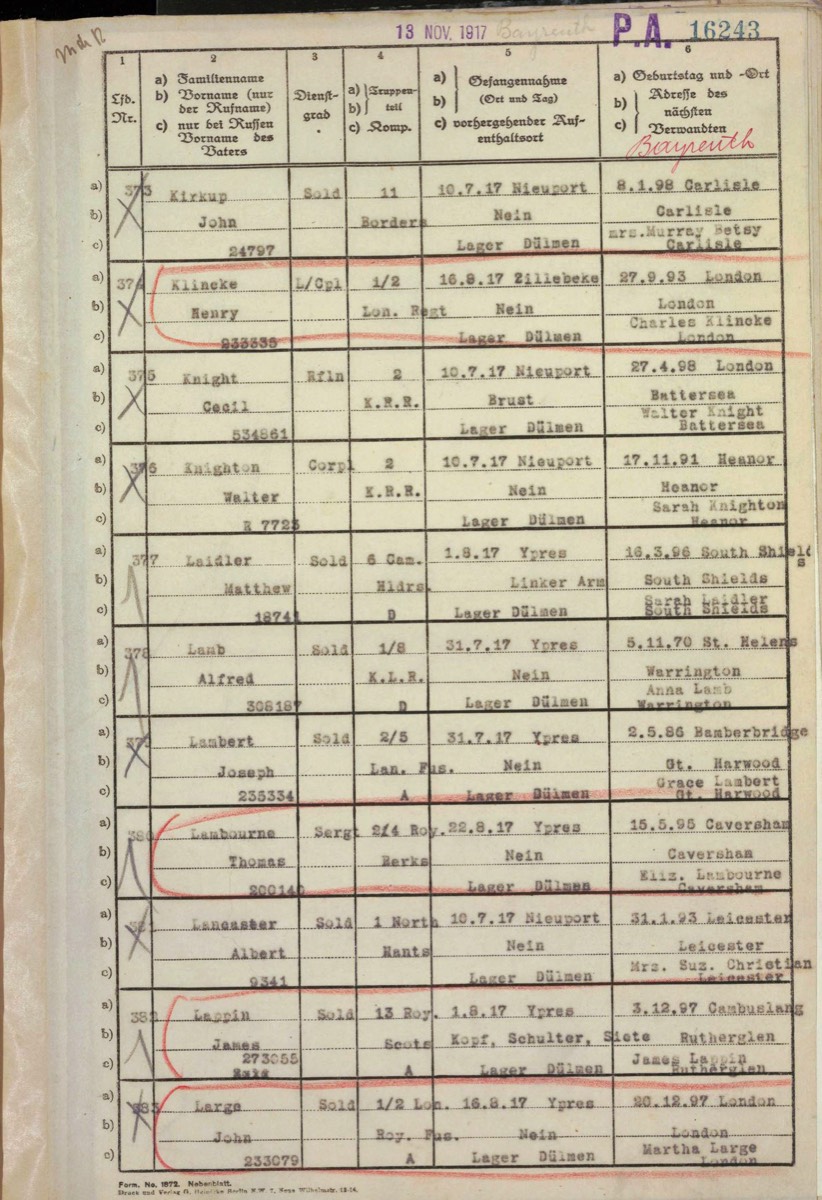 13 NOV. 1917 Bayreuth P.A. 16243
1 2 3 4 5 6
Lfd. Nr.
a) Familienname
b) Vorname (nur der Rufname)
c) nur bei Russen Vorname des Vaters
Dienst-
grad
a) Truppen-
b) teil
c) Komp.
a) Gefangennahme
b) (Ort und Tag)
c) vorhergehender Auf-
enthaltsort
a) Geburtstag und -Ort
b) Adresse des nächsten
c) Verwandten
Bayreuth
a) 373 Kirkup Sold 11 10.7.17 Nieuport 8.1.98 Carlisle
b) John Borders Nein Carlisle
mrs.Murray Betsy
c) 24797 Lager Dülmen Carlisle
a) 374 Klincke L/Cpl 1/2 16.8.17 Zillebeke 27.9.93 London
b) Henry Lon. Regt Nein London
Charles Klincke
c) 233335 Lager Dülmen London
a) 375 Knight Rfln 2 10.7.17 Nieuport 27.4.98 London
b) Cecil K.R.R. Brust Battersea
Walter Knight
c) 534861 Lager Dülmen Battersea
a) 376 Knighton Corpl 2 10.7.17 Nieuport 17.11.91 Heanor
b) Walter K.R.R. Nein Heanor
Sarah Knighton
c) R 7723 Lager Dülmen Heanor
a) 377 Laidler Sold 6 Cam. 1.8.17 Ypres 16.3.96 South Shields
b) Matthew Hldrs. Linker Arm South Shields
Sarah Laidler
c) 18741 D Lager Dülmen South Shields
a) 378 Lamb Sold 1/8 31.7.17 Ypres 5.11.70 St. Helens
b) Alfred K.L.R. Nein Warrington
Anna Lamb
c) 308187 D Lager Dülmen Warrington
a) 379 Lambert Sold 2/5 31.7.17 Ypres 2.5.86 Bamberbridge
b) Joseph Lan. Fus. Nein Gt. Harwood
Grace Lambert
c) 235334 A Lager Dülmen Gt. Harwood
a) 380 Lambourne Sergt 2/4 Roy. 22.8.17 Ypres 15.5.95 Caversham
b) Thomas Berks Nein Caversham
Eliz. Lambourne
c) 200140 Lager Dülmen Caversham
a) 381 Lancaster Sold 1 North 10.7.17 Nieuport 31.1.93 Leicester
b) Albert Hants Nein Leicester
Mrs. Suz. Christian
c) 9341 Lager Dülmen Leicester
a) 382 Lappin Sold 13 Roy. 1.8.17 Ypres 3.12.97 Cambuslang
b) James Scots Kopf, Schulter, Siete Rutherglen
273055 James Lappin
c) A Lager Dülmen Rutherglen
a) 383 Large Sold 1/2 Lon. 16.8.17 Ypres 20.12.97 London
b) John Roy. Fus. Nein London
Martha Large
c) 233079 A Lager Dülmen London
Form. No. 1872. Nebenblatt.